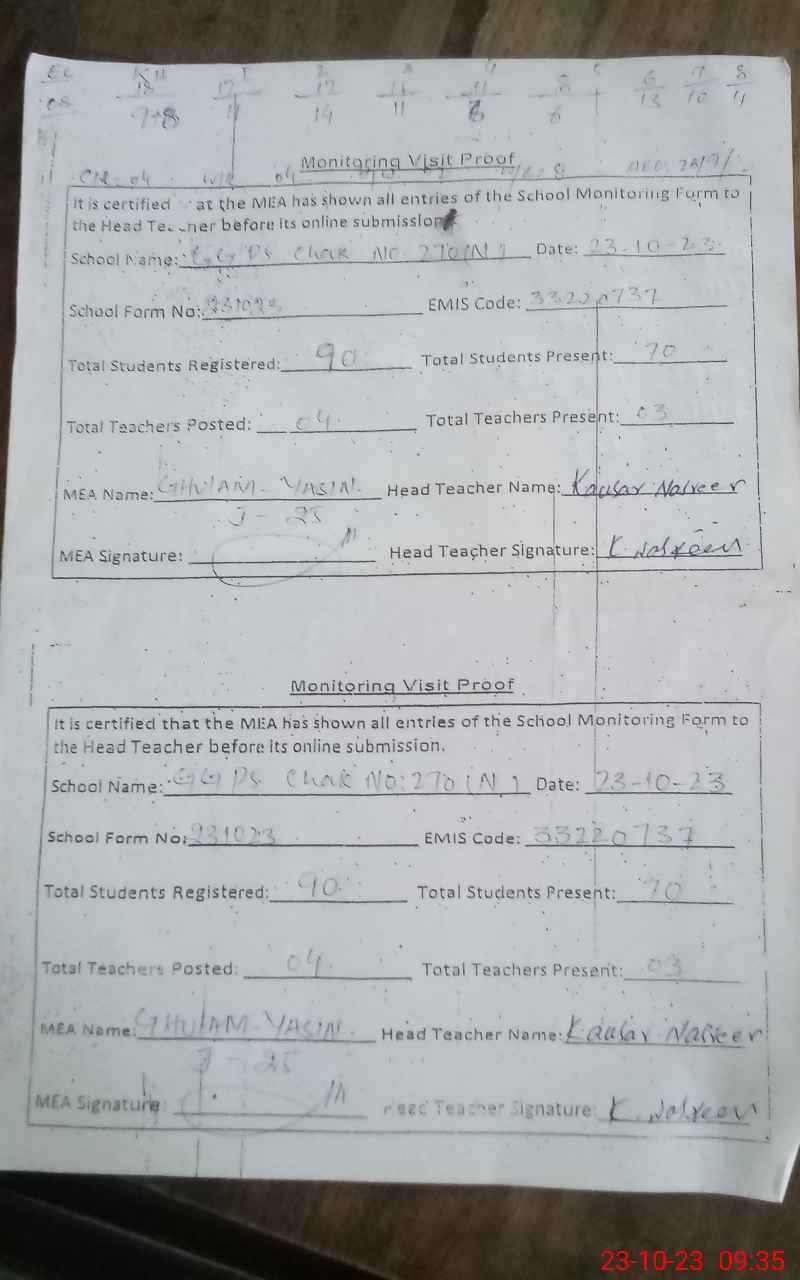 EC K 11 1 2 3 4 5 6 7 8
08 18 17 17 11 11 8 13 10 11
7+8 11 14 11 8 6
04 04 8
Monitoring Visit Proof
It is certified at the MEA has shown all entries of the School Monitoring Form to
the Head Teacher before its online submission
School Name: GGPS Chak NO. 270(N) Date: 23-10-23
School Form No: 231023 EMIS Code: 33220737
Total Students Registered: 90 Total Students Present: 70
Total Teachers Posted: 04 Total Teachers Present: 03
MEA Name: GHULAM-YASIN. Head Teacher Name: Kausar Nasreen
J-25
MEA Signature: Head Teacher Signature: K Nasreen
Monitoring Visit Proof
It is certified that the MEA has shown all entries of the School Monitoring Form to
the Head Teacher before its online submission.
School Name: GGPS Chak NO:270(N) Date: 23-10-23
School Form No: 231023 EMIS Code: 33220737
Total Students Registered: 90 Total Students Present: 70
Total Teachers Posted: 04 Total Teachers Present: 03
MEA Name: GHULAM-YASIN. Head Teacher Name: Kausar Nasreen
J-25
MEA Signature: Head Teacher Signature: K. Nasreen
23-10-23 09:35